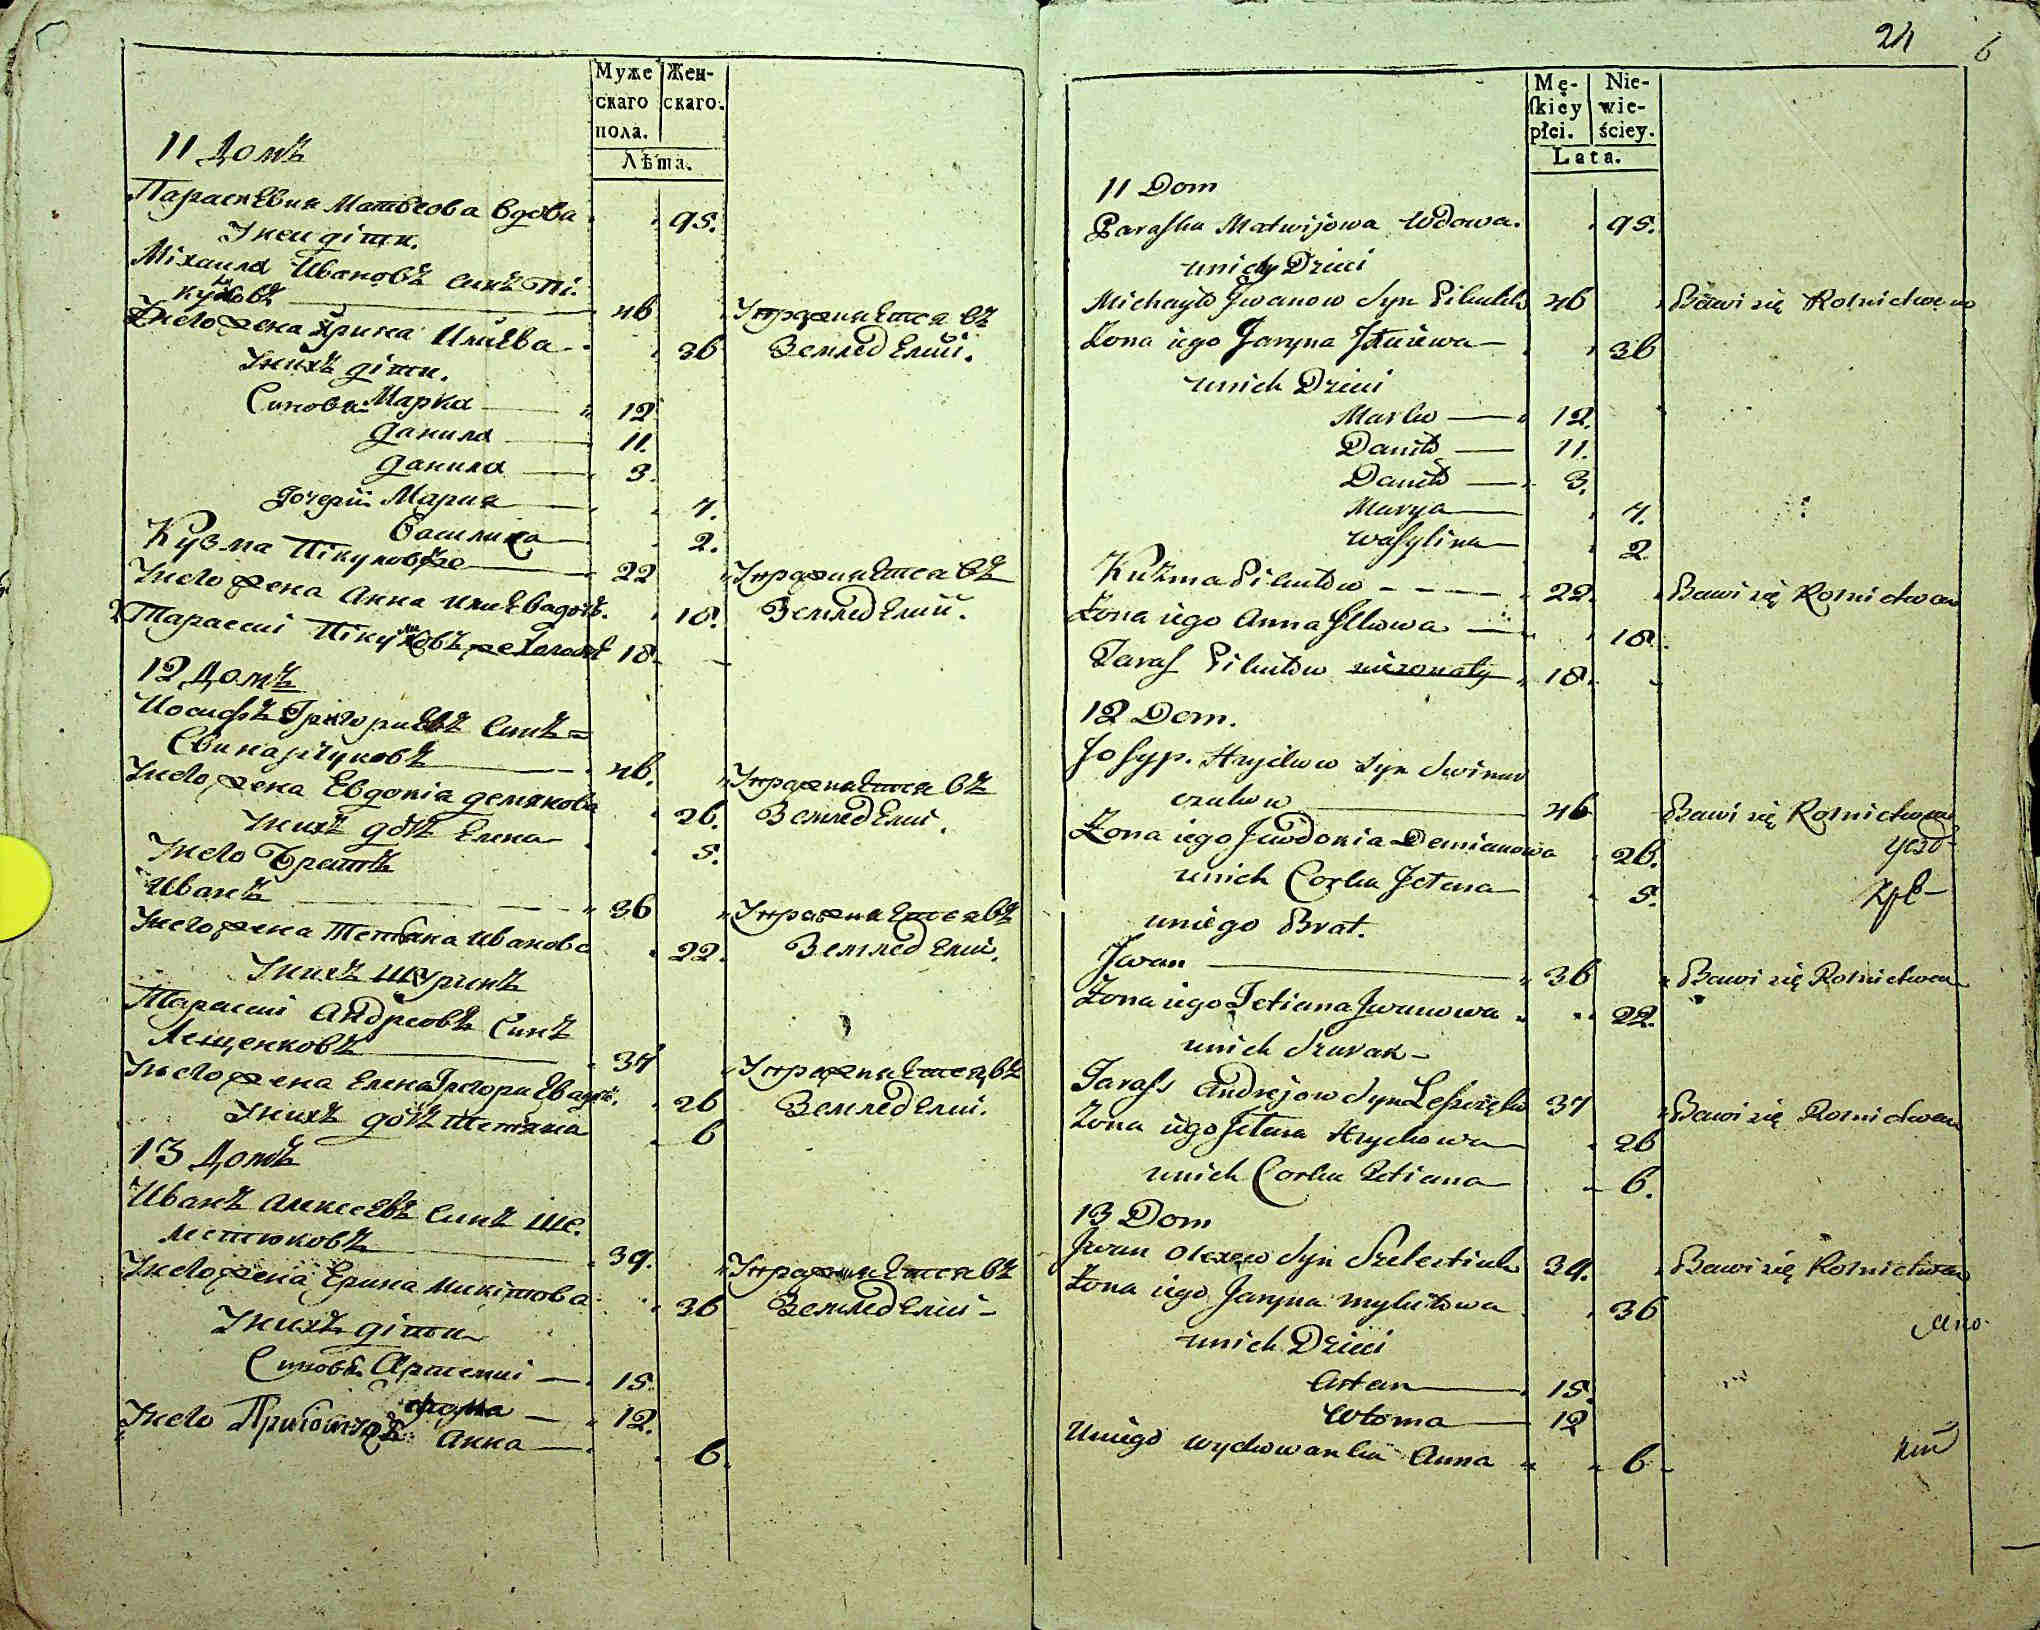 Муже
скаго
пола.
Жен-
скаго.
Лѣта.
11 Домъ
Параскевия Матвеова вдова 95.
У неи діти.
Міхаила Ивановъ Синъ Пі-
куловъ 46 Упражняется въ
У него жена Ярина Илиева 36 Земледелиї.
У нихъ діти.
Синови: Марко 12
Данила 11.
Данила 3.
Дочерїи Мария 7.
Василина 2.
Кузма Пікуловъ 22 Упражняется въ
У него жена Анна Илиева дочь. 18. Земледелии.
Тарасиі Пікуловъ 18
12 Домъ
Иосифъ Григориевъ Синъ =
Свинарчуковъ 46. Упражняется въ
У него жена Евдокія Демянова 26. Земледелиї.
У нихъ дочь Елена 5.
У него Братъ
Иванъ 36 Упражняется въ
У него жена Тетяна Иванова 22. Земледелиї.
У нихъ Шуринъ
Тарасиі Андреовъ Синъ
Лещенковъ 37 Упражняется въ
У него жена Елена Григориева доч. 26 Земледелиї.
У нихъ дочь Тетяна 6
13 Домъ
Иванъ Алексеевъ Синъ Ше-
лестюковъ 39. Упражняется въ
У него жена Ерина Микитова 36 Земледелиї
У нихъ діти
Синови Арисемиі 15.
Фома 12.
У него Анна 6.
24 6
Mę-
ſkiey
płci.
Nie-
wie-
ściey.
Lata.
11 Dom
Paraſka Matwijowa Wdowa. 95.
u niey Dzieci
Michayło Jwanow Syn Pikuluk 46 Bawi się Rolnictwem
Zona iego Jaryna Jłuiewa 36
u nich Dzieci
Marko 12.
Daniło 11.
Daniło 3.
Marya 7.
Waſylina 2
Kuzma Pikułow 22. Bawi się Rolnictwem
Zona iego Anna Jlkowa 18.
Taraſ Pikułow niezonaty 18.
12 Dom.
Joſyp. Hryckow Syn Swinar
czukow 46 Bawi się Rolnictwem
Zona iego Jewdokia Demianowa 26.
u nich Corka Jełena 5.
u niego Brat.
Jwan 36 Bawi się Rolnictwem
Zona iego Tetiana Jwanowa 22.
u nich Szurak
Taraſs Andrejow Syn Leſzczęko 37 Bawi się Rolnictwem
Zona iego Jełena Hryckowa 26
u nich Corka Tetiana 6.
13 Dom
Jwan Olexew Syn Szelestiuk 39. Bawi się Rolnictwem
Zona iego Jaryna Mykitowa 36
u nich Dzieci
Artem 15
Wtoma 12
U niego wychowanka Anna 6